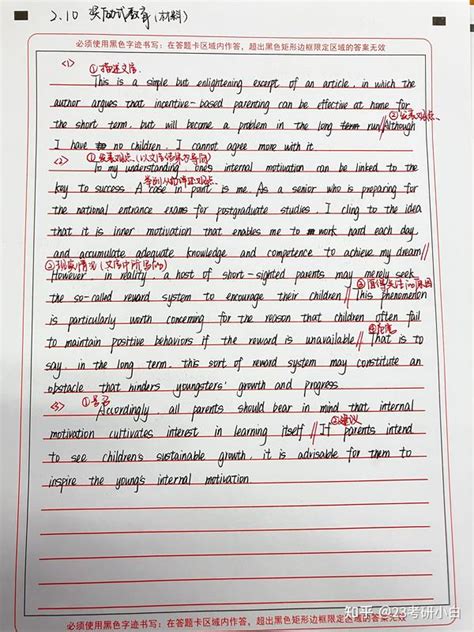 2.10 奖励式教育(材料)
必须使用黑色字迹书写:在答题卡区域内作答,超出黑色矩形边框限定区域的答案无效
<1> ①描述文章.
This is a simple but enlightening excerpt of an article, in which the
author argues that incentive-based parenting can be effective at home for
②发表观点.
the short term, but will become a problem in the long term run//Although
I have no children, I cannot agree more with it.
<2> ①发表观点.(以文章结果为导向)
To my understanding, one's internal motivation can be linked to the
key to success. A case in point is me. As a senior who is preparing for
the national entrance exams for postgraduate studies, I cling to the idea
that it is inner motivation that enables me to work hard each day,
and accumulate adequate knowledge and competence to achieve my dream//
②现实情况(文章中所写的)
However, in reality, a host of short-sighted parents may merely seek
the so-called reward system to encourage their children//This phenomenon
is particularly worth concerning for the reason that children often fail
④危害
to maintain positive behaviors if the reward is unavailable//That is to
say, in the long term, this sort of reward system may constitute an
obstacle that hinders youngsters' growth and progress.
<3> ①号召
Accordingly, all parents should bear in mind that internal
②建议
motivation cultivates interest in learning itself//If parents intend
to see children's sustainable growth, it is advisable for them to
inspire the young's internal motivation.
知乎 @23考研小白
必须使用黑色字迹书写:在答题卡区域内作答,超出黑色矩形边框限定区域的答案无效